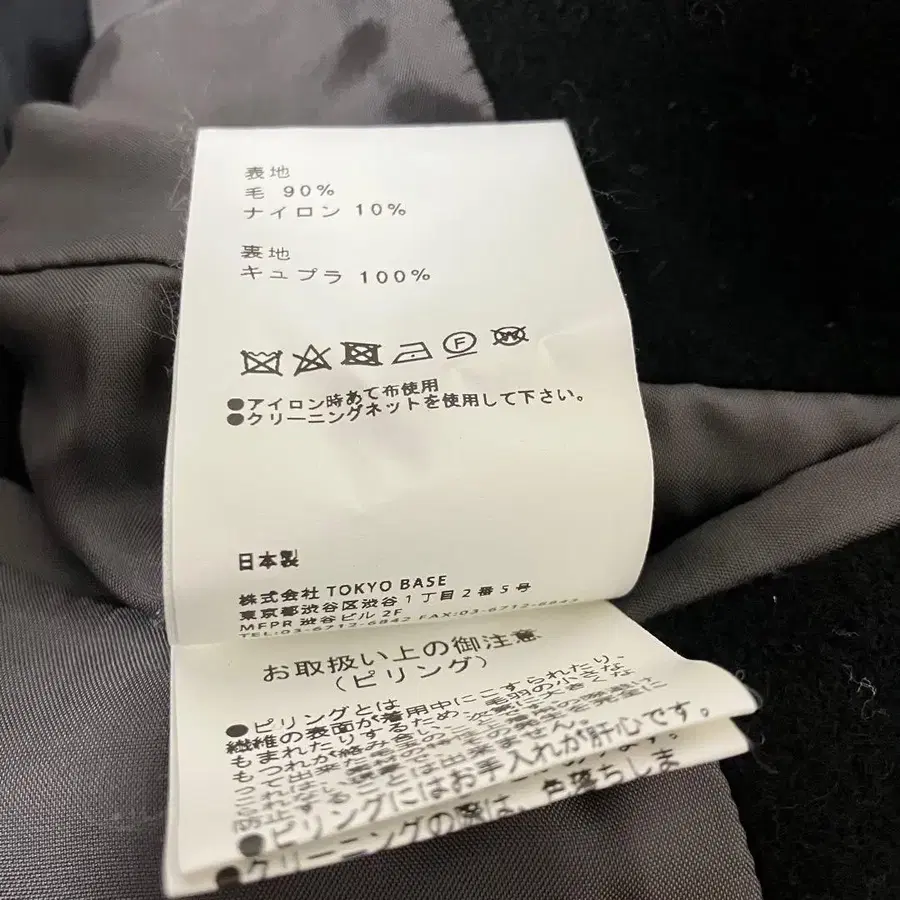 表地
毛 90%
ナイロン 10%
裏地
キュプラ 100%
F
W
●アイロン時あて布使用
●クリーニングネットを使用して下さい。
日本製
株式会社 TOKYO BASE
東京都渋谷区渋谷1丁目2番5号
MFPR 渋谷ビル 2F
TEL:03-6712-6842 FAX:03-6712-6843
お取扱い上の御注意
(ピリング)
●ピリングとは
繊維の表面が着用中にこすられたり、
もまれたりするため、毛羽の小さな
もつれが絡み合い、次第に大きくな
防止することは出来ません。
●ピリングにはお手入れが肝心です。
●クリーニングの際は、色落ちしま